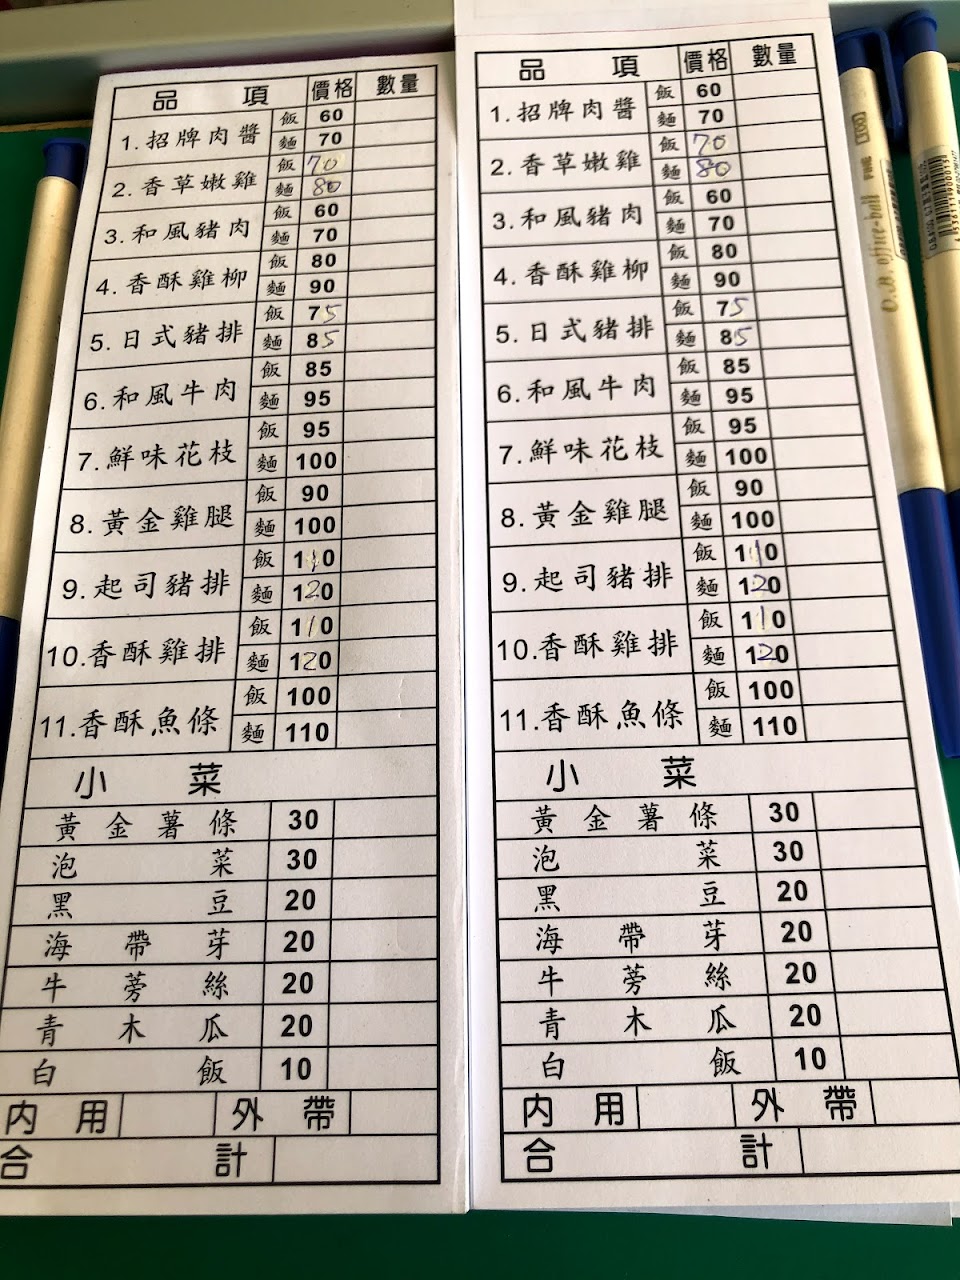 品項 價格 數量
1.招牌肉醬 飯 60
麵 70
2.香草嫩雞 飯 70
麵 80
3.和風豬肉 飯 60
麵 70
4.香酥雞柳 飯 80
麵 90
5.日式豬排 飯 75
麵 85
6.和風牛肉 飯 85
麵 95
7.鮮味花枝 飯 95
麵 100
8.黃金雞腿 飯 90
麵 100
9.起司豬排 飯 110
麵 120
10.香酥雞排 飯 110
麵 120
11.香酥魚條 飯 100
麵 110
小菜
黃金薯條 30
泡菜 30
黑豆 20
海帶芽 20
牛蒡絲 20
青木瓜 20
白飯 10
內用 外帶
合計
品項 價格 數量
1.招牌肉醬 飯 60
麵 70
2.香草嫩雞 飯 70
麵 80
3.和風豬肉 飯 60
麵 70
4.香酥雞柳 飯 80
麵 90
5.日式豬排 飯 75
麵 85
6.和風牛肉 飯 85
麵 95
7.鮮味花枝 飯 95
麵 100
8.黃金雞腿 飯 90
麵 100
9.起司豬排 飯 110
麵 120
10.香酥雞排 飯 110
麵 120
11.香酥魚條 飯 100
麵 110
小菜
黃金薯條 30
泡菜 30
黑豆 20
海帶芽 20
牛蒡絲 20
青木瓜 20
白飯 10
內用 外帶
合計
O.B. Office-ball FINE